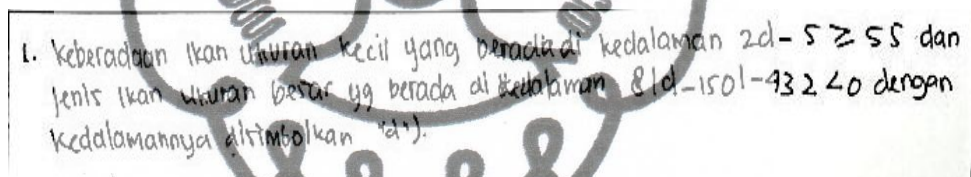 1. Keberadaan ikan ukuran kecil yang berada di kedalaman 2d - 5 ≥ 55 dan
jenis ikan ukuran besar yg berada di kedalaman 8|d-150|-432 <0 dengan
kedalamannya disimbolkan "d").